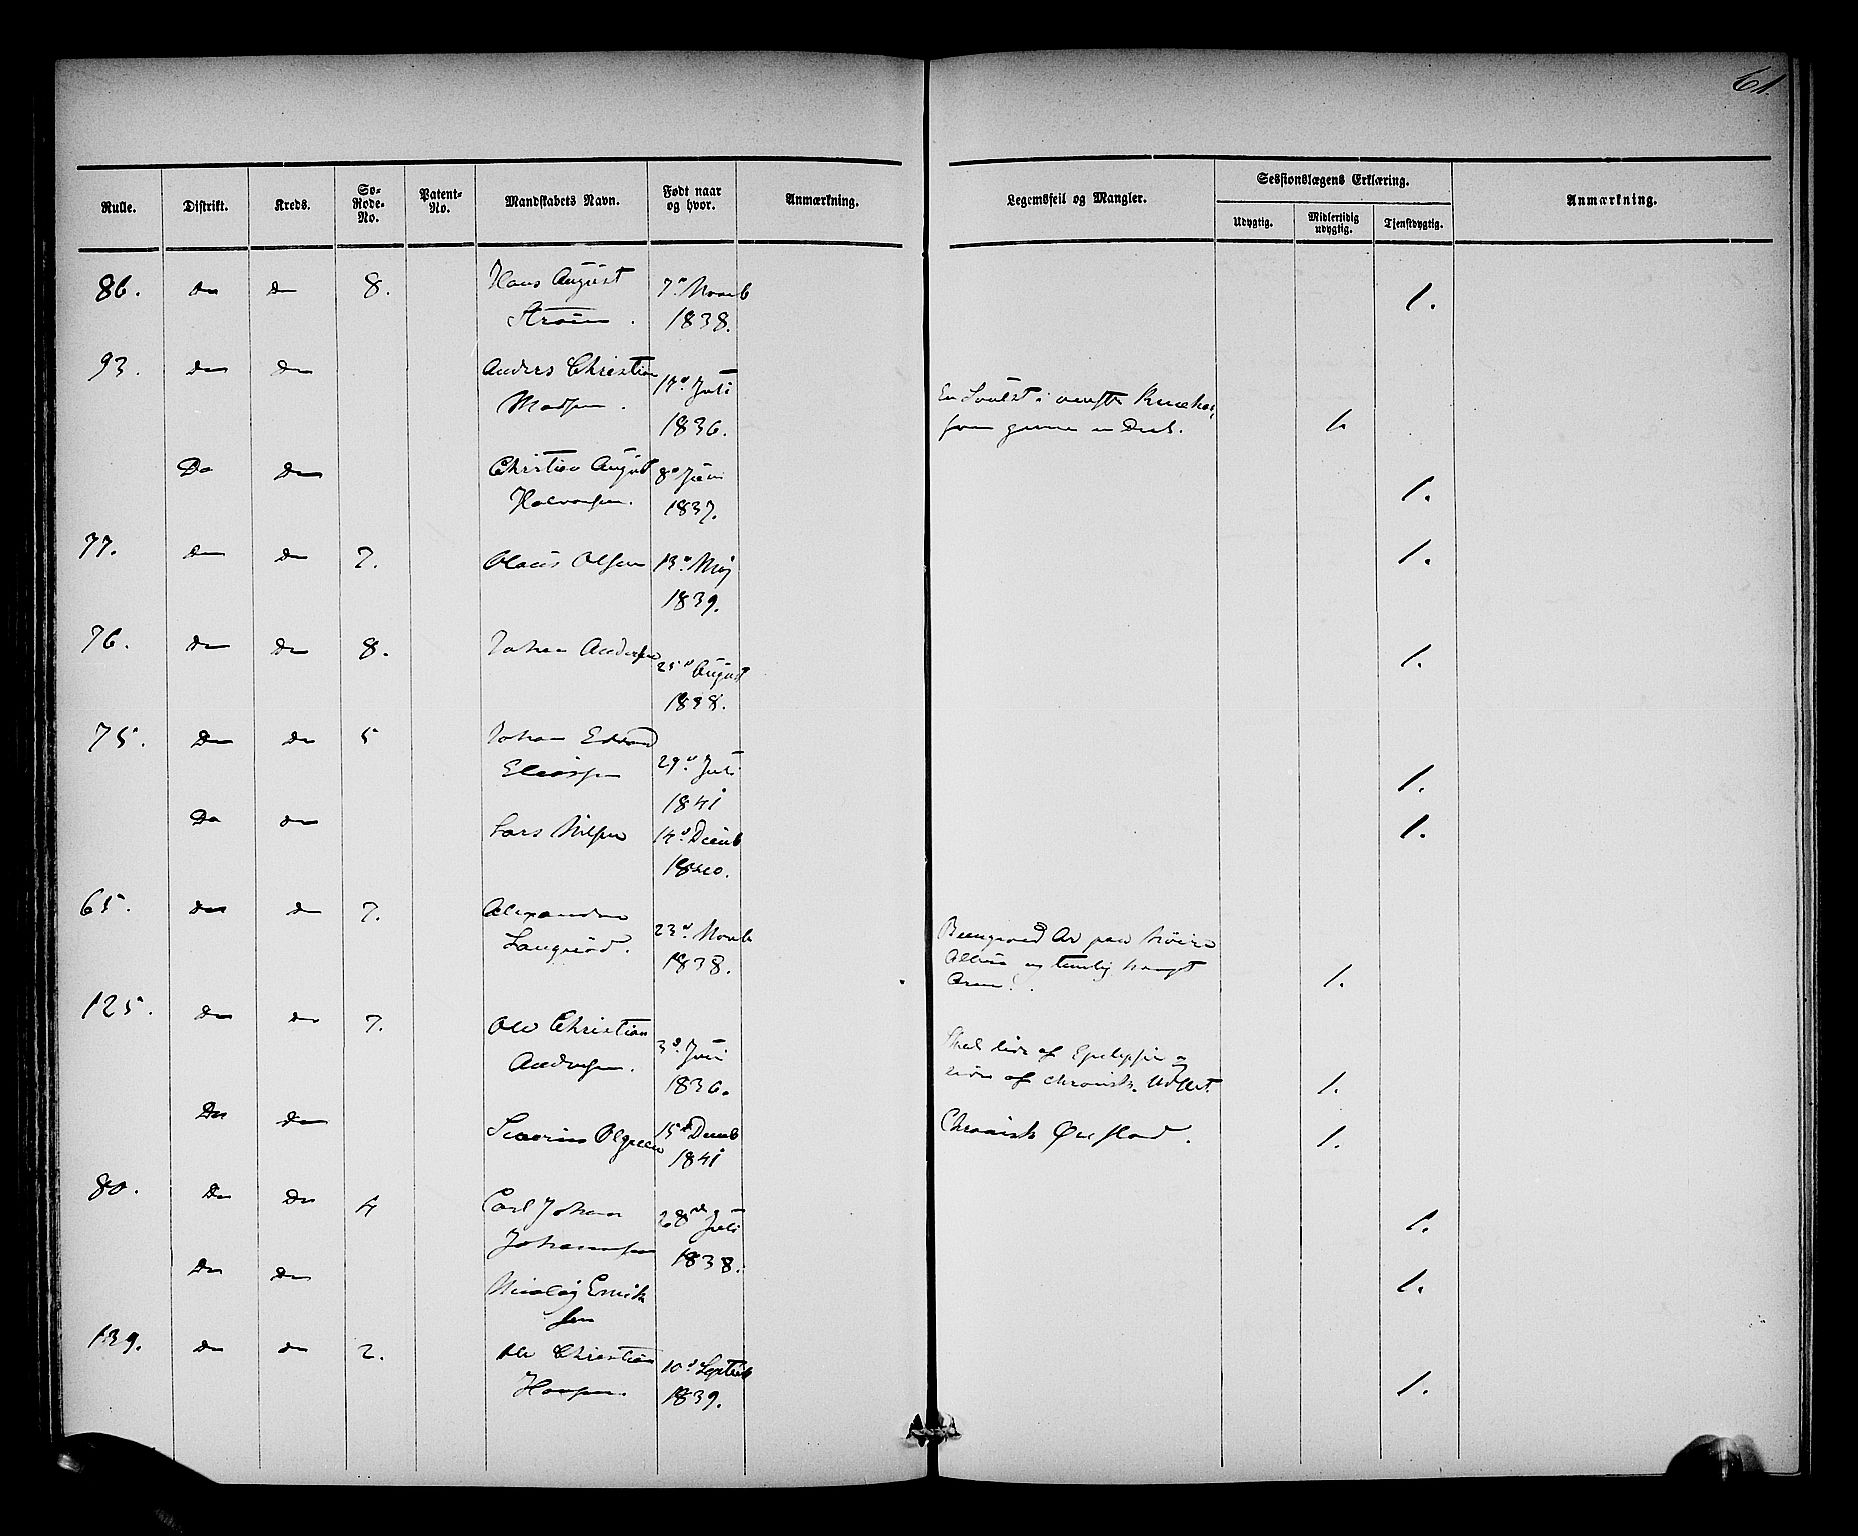 61.
Rulle. Distrikt. Kreds. So-Rode-No. Patent-No. Mandskabets Navn. Født naar og hvor. Anmærkning. Legemsfeil og Mangler. Sessionslægens Erklæring. Anmærkning.
Udygtig. Midlertidig udygtig. Tjenstdygtig.
86. Do Do 8. Hans August 7de Novb 1.
Strøm. 1838.
93. Do Do Anders Christian 17de Juli
Madsen. 1836. En Svulst i venstre Knæhas, 1.
Do Do Christian August 8de Juni
Halvorsen. 1837. 1.
77. Do Do 7. Olaus Olsen 13de Maj 1.
1839.
76. Do Do 8. Johan Andersen 25de August 1.
1838.
75. Do Do 5 Johan Edvard 29de Juli
Eliassen 1841 1.
Do Do Lars Nilsen 14de Decmb 1.
1840.
65. Do Do 7. Alexander 23de Novb
Langrød. 1838. Beengroed Ar paa høire
Albue og temlig krumt
Arm. 1.
125. Do Do 7. Ole Christian 3de Juni
Andersen. 1836. Skal lide af Epelepsie og
lider af chronisk Udflet. 1.
Do Do Severin Olsen 15de Decmb Chronisk Øreflod. 1.
1841
80. Do Do 4 Carl Johan 28de Juli 1.
Johannesen 1838.
Do Do Nicolaj Erick 1.
sen
139. Do Do 2. Ole Christian 10de Septbr
Hansen. 1839. 1.